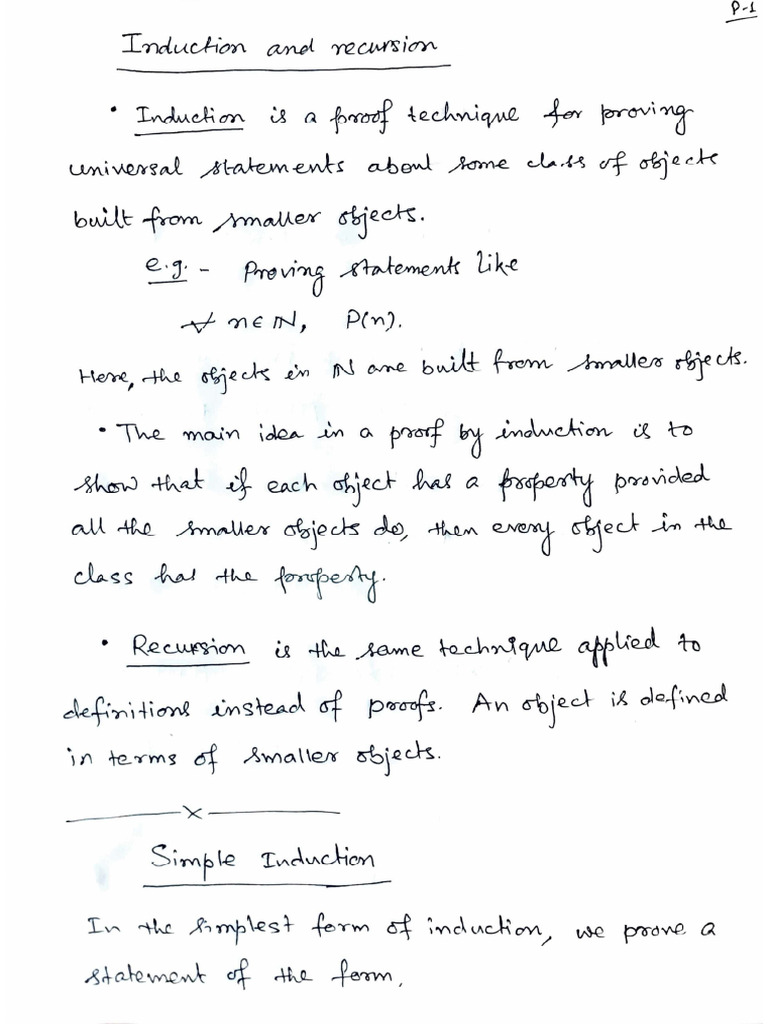 P-1
Induction and recursion
• Induction is a proof technique for proving
universal statements about some class of objects
built from smaller objects.
e.g. - Proving statements like
∀ n ∈ ℕ, P(n).
Here, the objects in ℕ are built from smaller objects.
• The main idea in a proof by induction is to
show that if each object has a property provided
all the smaller objects do, then every object in the
class has the property.
• Recursion is the same technique applied to
definitions instead of proofs. An object is defined
in terms of smaller objects.
———x———
Simple Induction
In the simplest form of induction, we prove a
statement of the form,